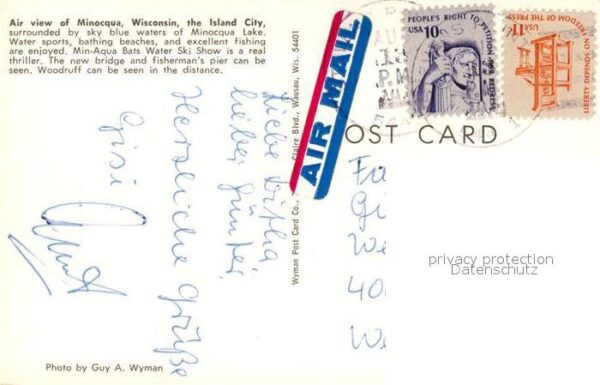 Air view of Minocqua, Wisconsin, the Island City,
surrounded by sky blue waters of Minocqua Lake.
Water sports, bathing beaches, and excellent fishing
are enjoyed, Min-Aqua Bats Water Ski Show is a real
thriller. The new bridge and fisherman's pier can be
seen. Woodruff can be seen in the distance.
Liebe
lieber Günter
Herzliche Grüße
Gisi
Photo by Guy A. Wyman
Wyman Post Card Co., Claire Blvd., Wausau, Wis. 54401
AIR MAIL
OST CARD
PEOPLE'S RIGHT TO PETITION FOR REDRESS
USA 10c
LIBERTY DEPENDS ON FREEDOM OF THE PRESS
USA 11c
P.M.
Fa
Gi
We
40
privacy protection
Datenschutz